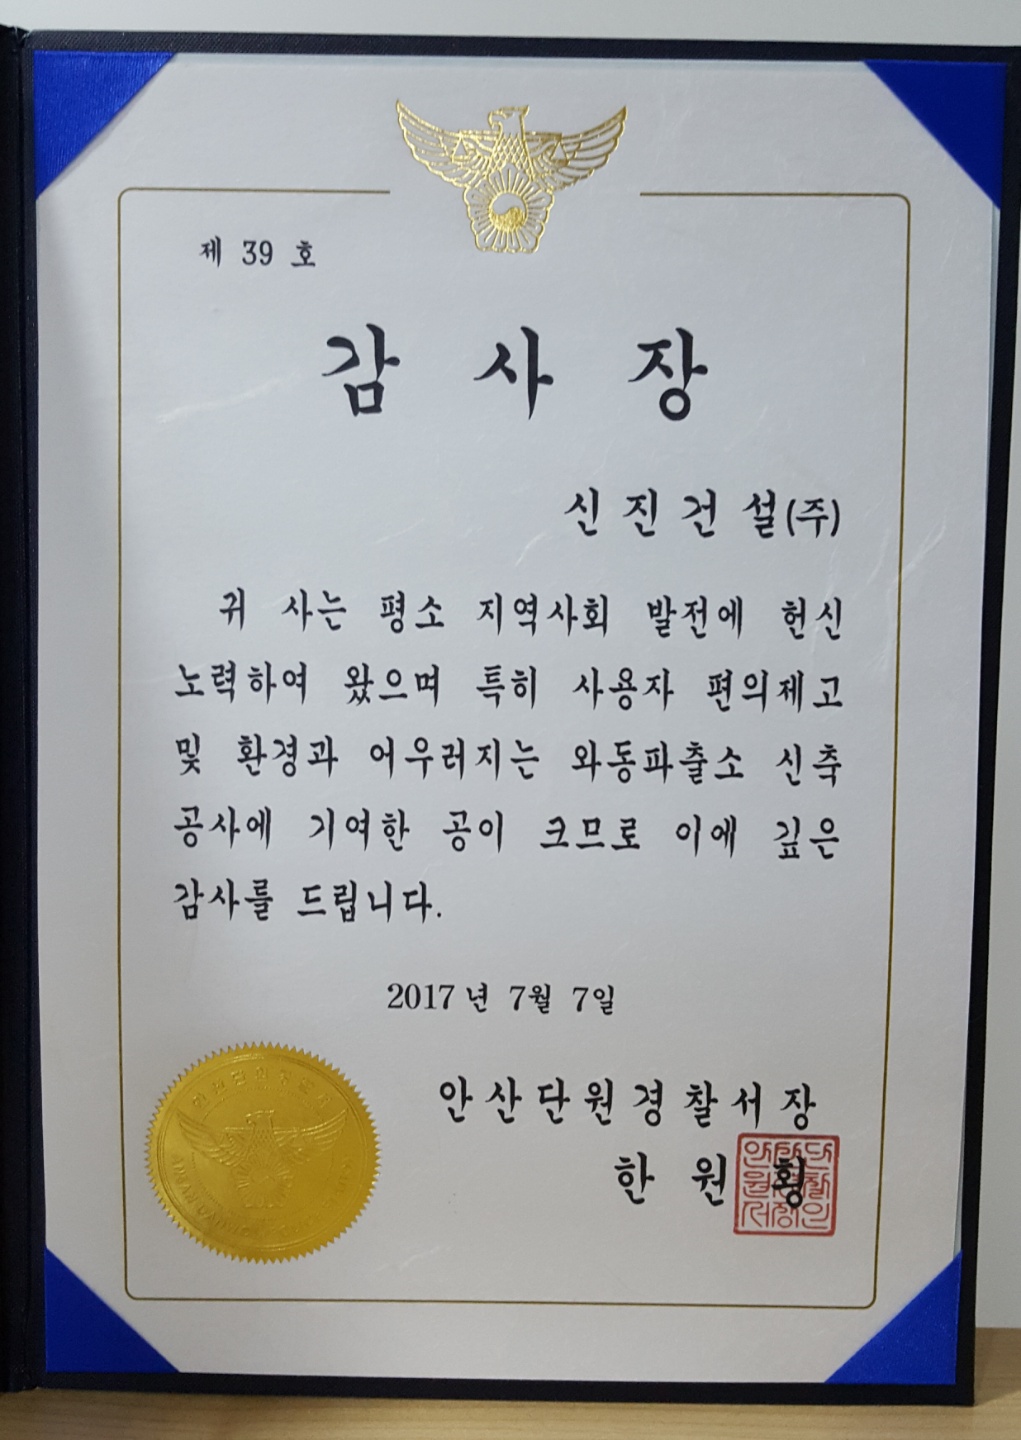 제 39 호
감 사 장
신 진 건 설(주)
귀 사는 평소 지역사회 발전에 헌신
노력하여 왔으며 특히 사용자 편의제고
및 환경과 어우러지는 와동파출소 신축
공사에 기여한 공이 크므로 이에 깊은
감사를 드립니다.
2017년 7월 7일
안산단원경찰서장
한 원 횡